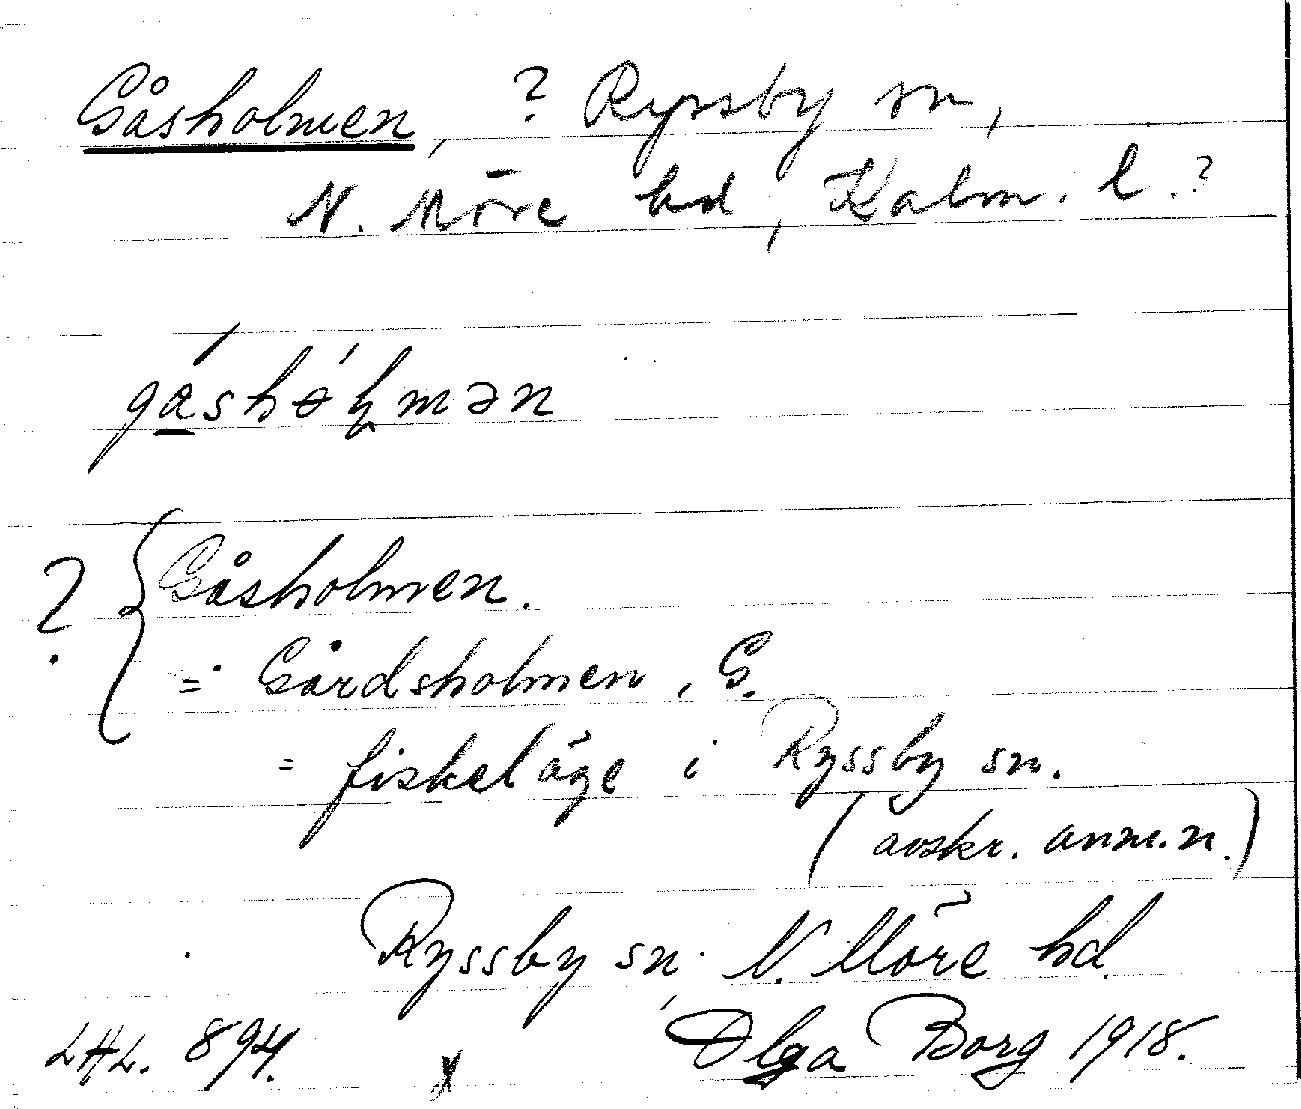 Gåsholmen, ? Ryssby sn,
N. Möre hd, Kalm. l.?
gåshəɫmən
? { Gåsholmen.
= Gårdsholmen, G.
= fiskeläge i Ryssby sn.
(avskr. anm.n.)
Ryssby sn. N. Möre hd.
LHL. 894. x Olga Borg 1918.